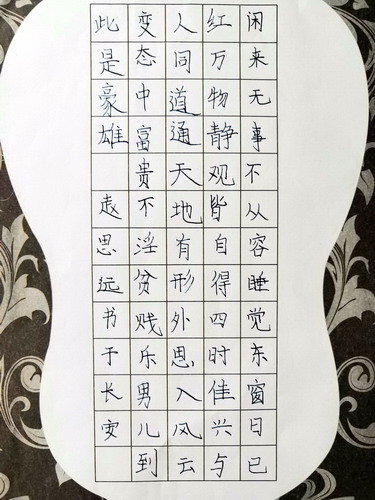 闲来无事不从容睡觉东窗日已
红万物静观皆自得四时佳兴与
人同道通天地有形外思入风云
变态中富贵不淫贫贱乐男儿到
此是豪雄 赵思远书于长安